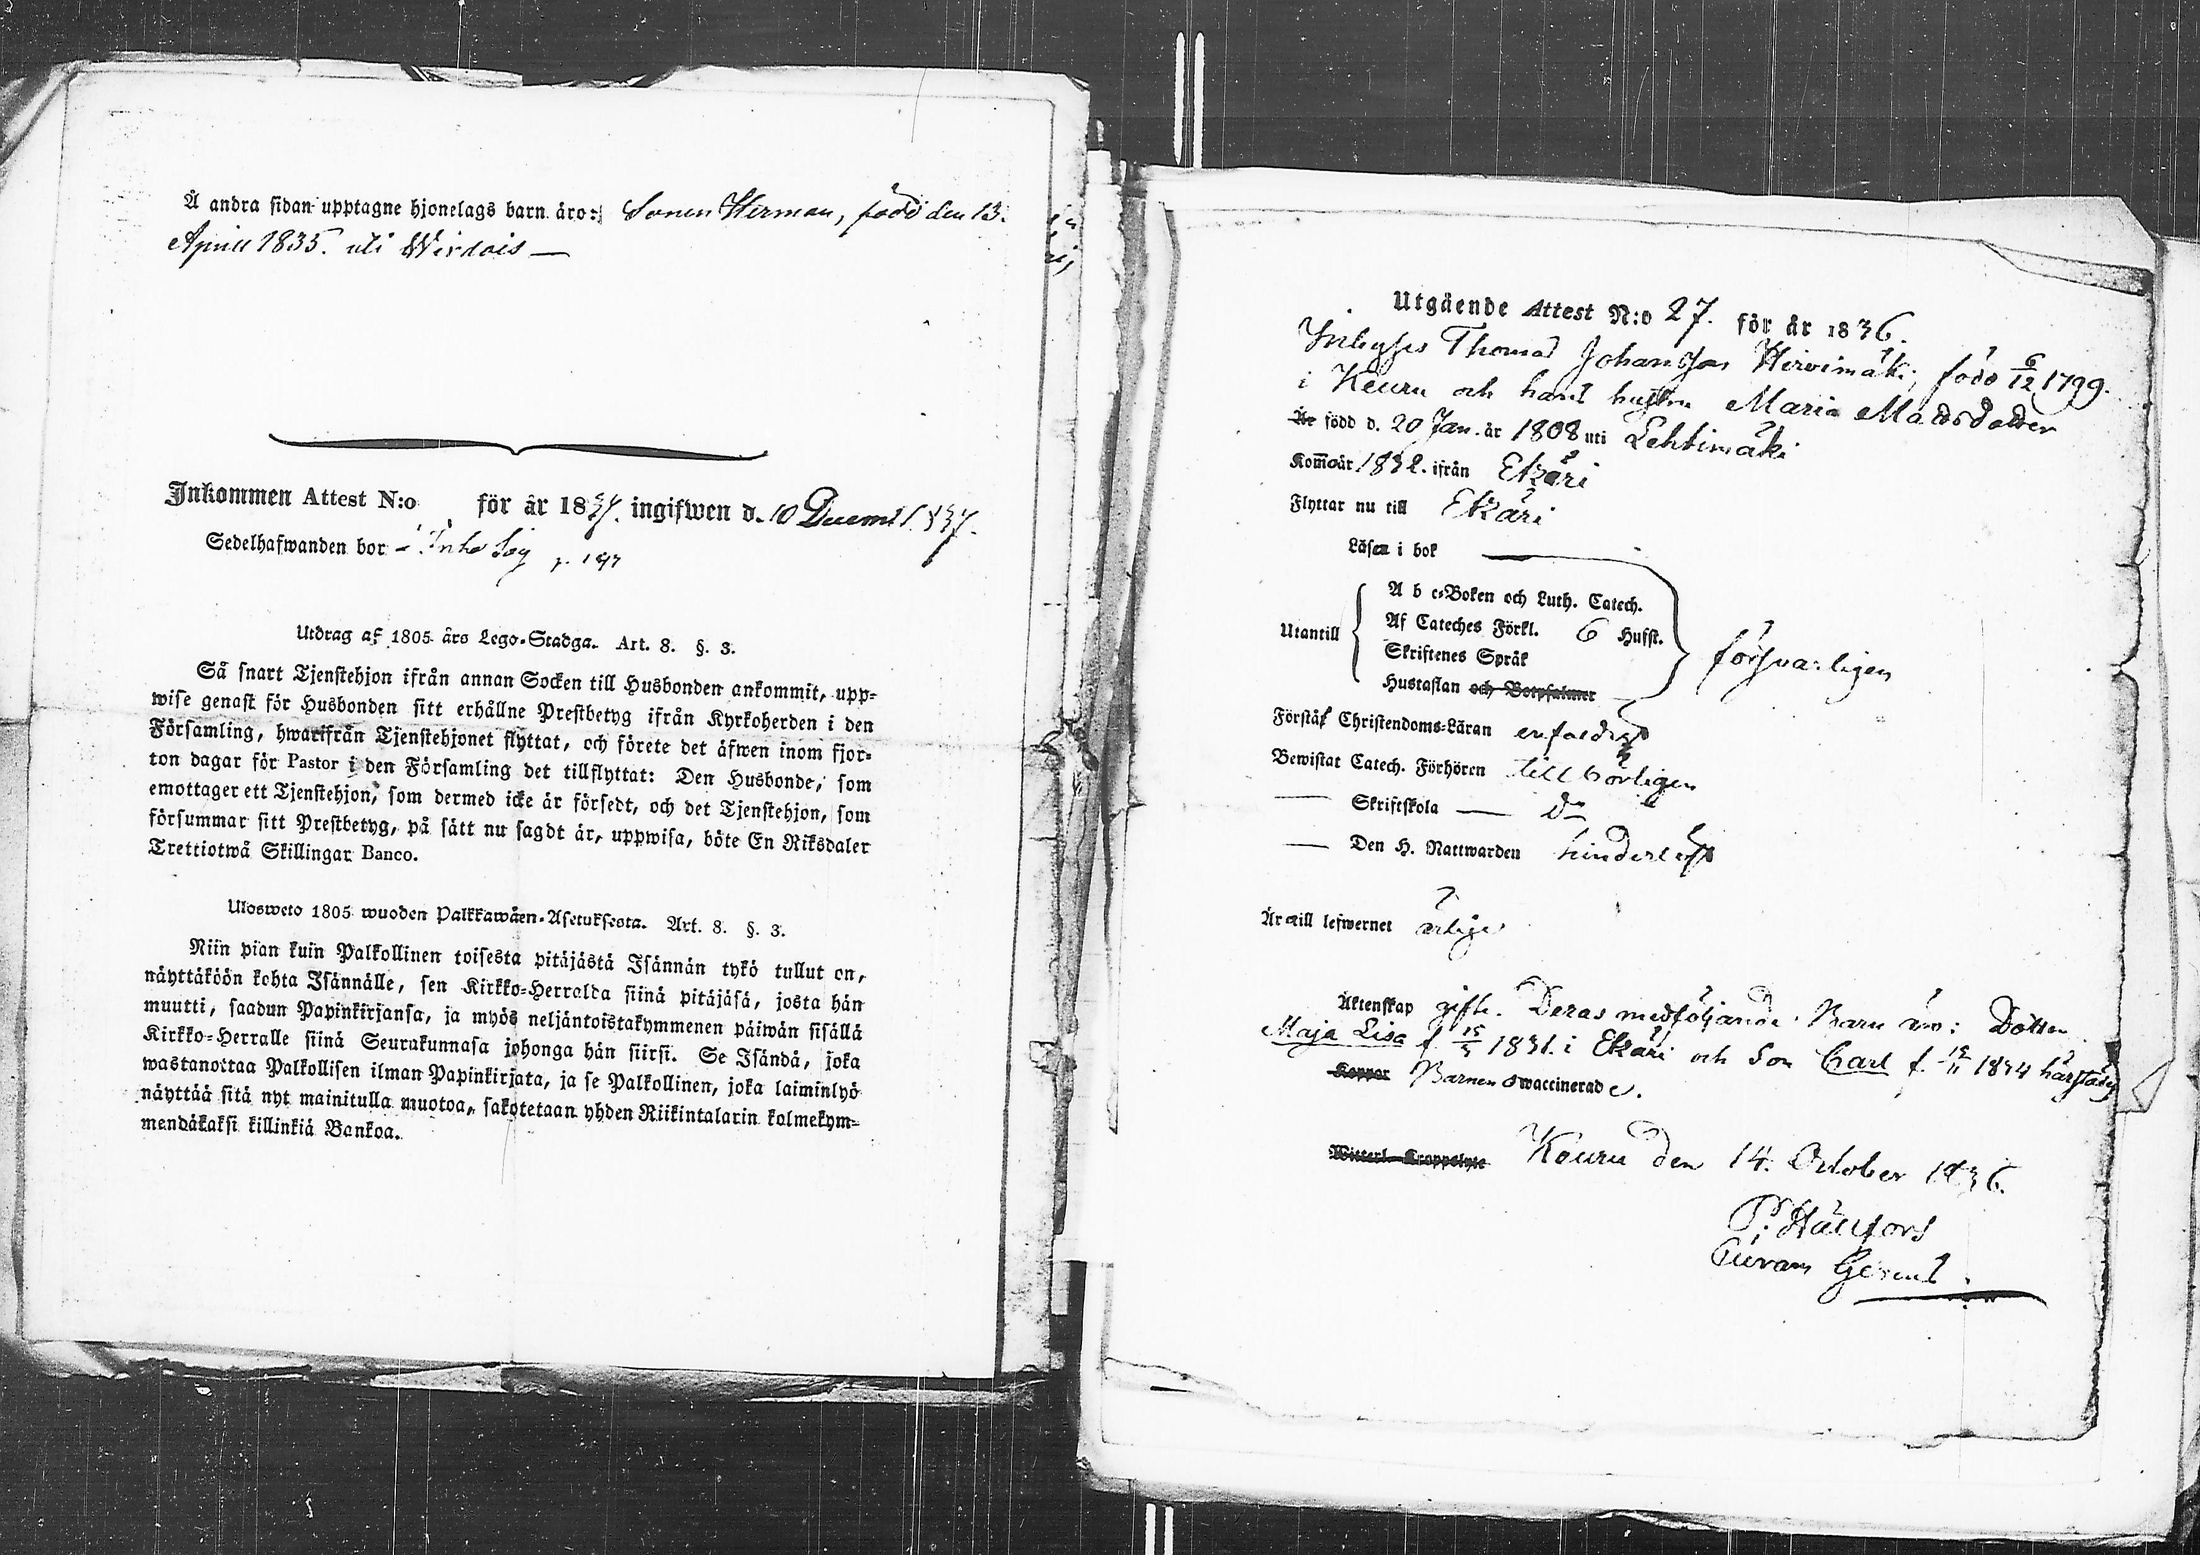 Å andra sidan upptagne hjonelags barn äro: Sonen Herman, född den 13.
April 1835. uti Wirdois —
Inkommen Attest N:o för år 1837. ingifwen d. 10 Decemb 1837.
Sedelhafwanden bor Inhe Log p. 197
Utdrag af 1805 års Lego-Stadga. Art. 8. §. 3.
Så snart Tjenstehjon ifrån annan Socken till Husbonden ankommit, upp-
wise genast för Husbonden sitt erhållne Prestbetyg ifrån Kyrkoherden i den
Församling, hwarifrån Tjenstehjonet flyttat, och förete det äfwen inom fjor-
ton dagar för Pastor i den Församling det tillflyttat: Den Husbonde, som
emottager ett Tjenstehjon, som dermed icke är försedt, och det Tjenstehjon, som
försummar sitt Prestbetyg, på sätt nu sagdt är, uppwisa, böte En Riksdaler
Trettiotwå Skillingar Banco.
Ulosweto 1805 wuoden Palkkawäen-Asetuksesta. Art. 8. §. 3.
Niin pian kuin Palkollinen toisesta pitäjästä Isännän tykö tullut on,
näyttäköön kohta Isännälle, sen Kirkko-Herralda siinä pitäjäsä, josta hän
muutti, saadun Papinkirjansa, ja myös neljäntoistakymmenen päiwän sisällä
Kirkko-Herralle siinä Seurakunnasa johonga hän siirsi. Se Isändä, joka
wastanottaa Palkollisen ilman Papinkirjata, ja se Palkollinen, joka laiminlyö
näyttää sitä nyt mainitulla muotoa, sakotetaan yhden Riikintalarin kolmekym-
mendäkaksi killinkiä Bankoa.
Utgående Attest N:o 27. för år 1836.
Inhyses Thomas Johansson Hirvimäki, född 6/12 1799.
i Keuru och hans hustru Maria Matsdotter
Är född d. 20 Jan. år 1808 uti Lehtimäki
Kom̄ o år 1832. ifrån Etzäri
Flyttar nu till Etzäri
Läser i bok
A b c-Boken och Luth. Catech.
Utantill Af Cateches Förkl. 6 Hufst. försvarligen
Skriftenes Språk
Hustaflan och Botpsalmer
Förstår Christendoms-Läran enfaldigt
Bewistat Catech. Förhören tillbörligen
— Skriftskola — do
— Den H. Nattwarden hinderlöst
Är o till lefwernet ärlige
Äktenskap gifte. Deras medföljande Barn äro: Dotter
Maja Lisa f. 15/3 1831. i Etzäri och Son Carl f. 12/11 1834 härstädes
Koppor Barnen o waccinerade.
Witterl. Kroppslyte Keuru den 14. October 1836.
P. Hällfors